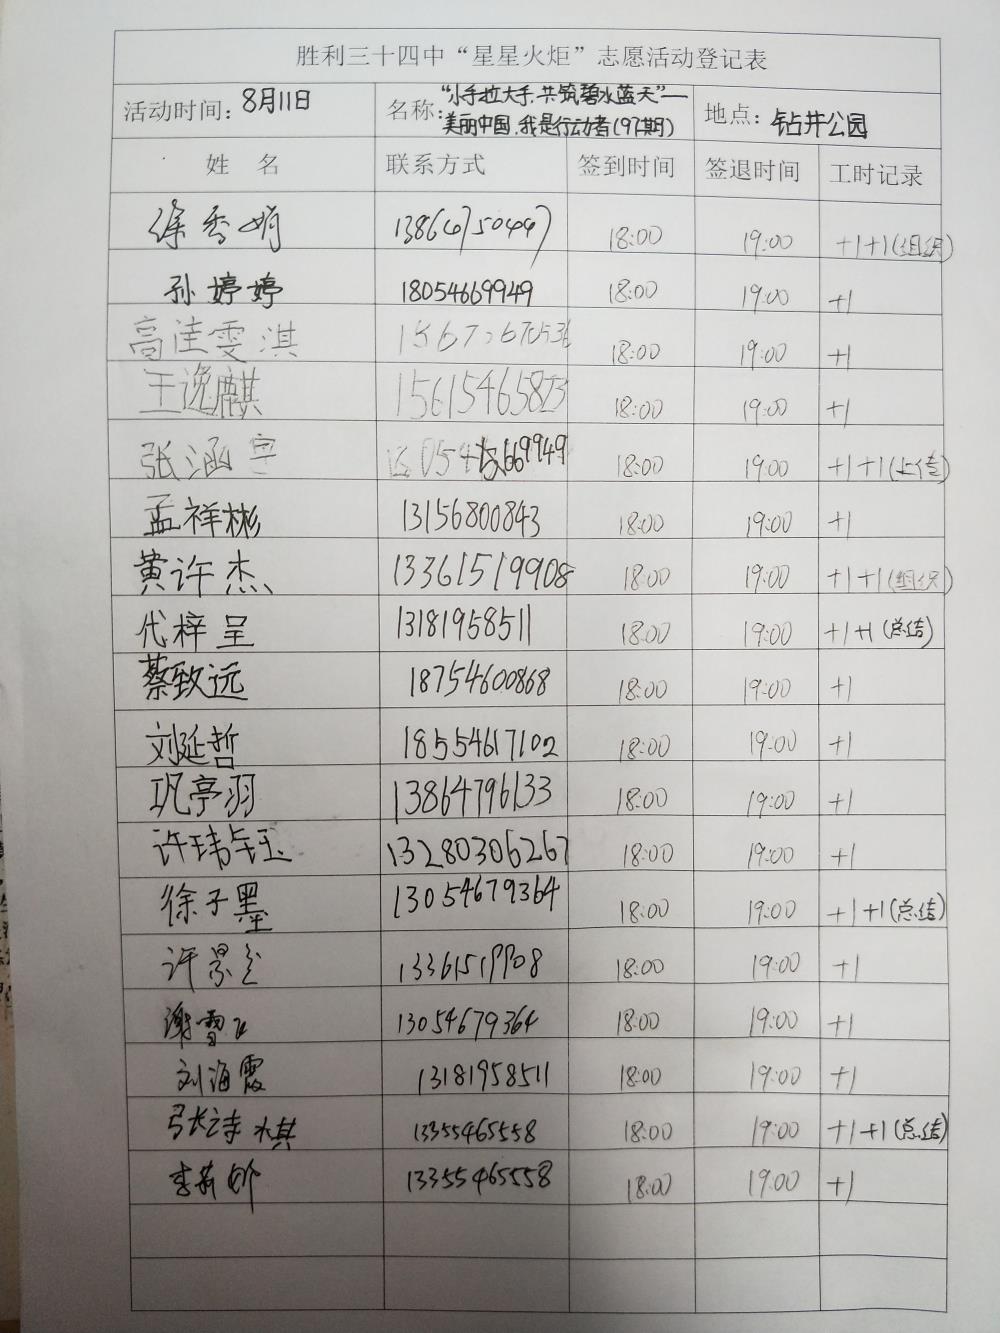 胜利三十四中“星星火炬”志愿活动登记表
活动时间：8月11日 名称：“小手拉大手，共筑碧水蓝天”—美丽中国，我是行动者（97期） 地点：钻井公园
姓 名 联系方式 签到时间 签退时间 工时记录
徐秀娟 13864750447 18:00 19:00 +1+1(组织)
孙婷婷 18054669949 18:00 19:00 +1
高洼雯淇 18:00 19:00 +1
王逸麒 15615465823 18:00 19:00 +1
张涵宇 18:00 19:00 +1+1(上传)
孟祥彬 13156800843 18:00 19:00 +1
黄许杰 13361519908 18:00 19:00 +1+1(组织)
代梓呈 13181958511 18:00 19:00 +1+1(总结)
蔡致远 18754600868 18:00 19:00 +1
刘延哲 18554617102 18:00 19:00 +1
巩亭羽 13864796133 18:00 19:00 +1
许玮钰 13280306267 18:00 19:00 +1
徐子墨 13054679364 18:00 19:00 +1+1(总结)
许景 13361519908 18:00 19:00 +1
谢雪 13054679364 18:00 19:00 +1
刘海霞 13181958511 18:00 19:00 +1
张诗淇 13355465558 18:00 19:00 +1+1(总结)
李莉娜 13355465558 18:00 19:00 +1